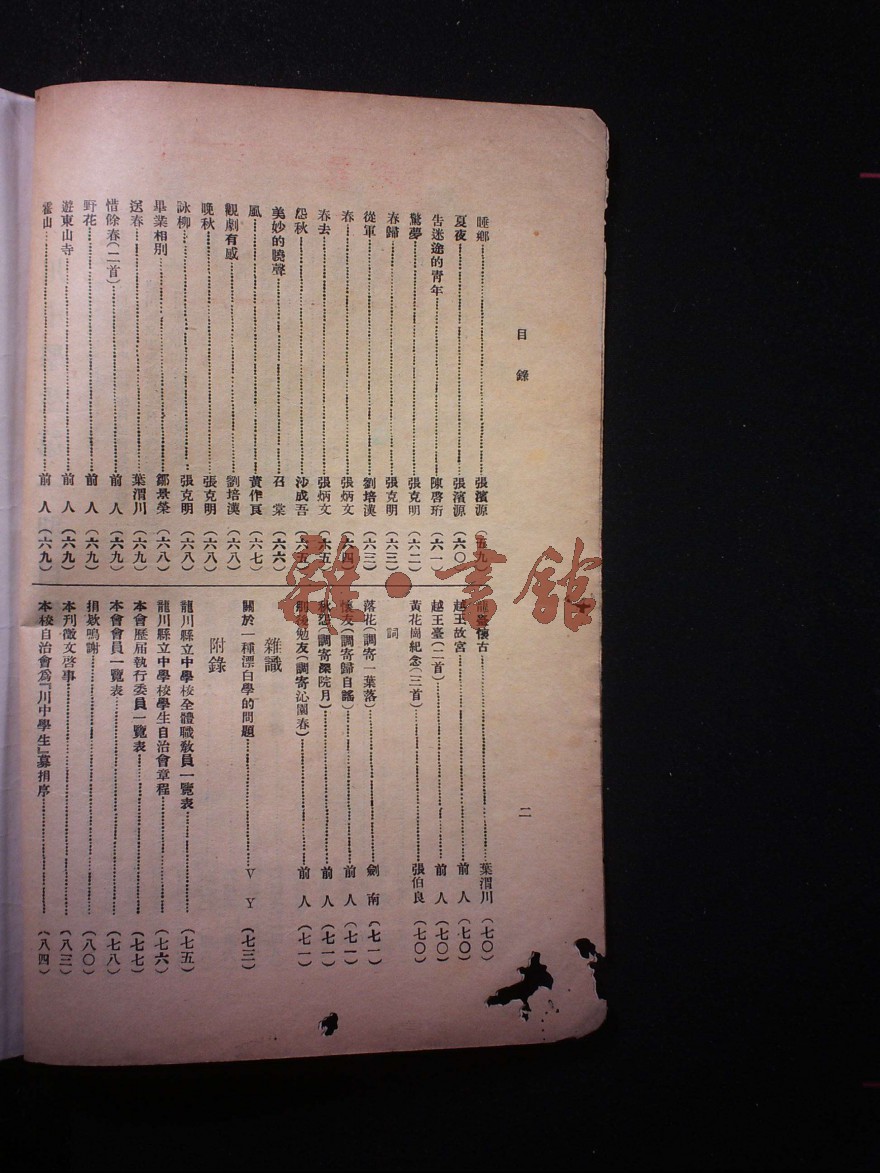 目錄
二
睡鄉……張濱源(五九)
夏夜……張濱源(六〇)
告迷途的青年……陳啓珩(六一)
驚夢……張克明(六二)
春歸……張克明(六三)
從軍……劉培漢(六三)
春……張炳文(六四)
春去……張炳文(六五)
怨秋……沙成吾(六五)
美妙的曉聲……召棠(六六)
風……黃作良(六七)
觀劇有感……劉培漢(六八)
晚秋……張克明(六八)
詠柳……張克明(六八)
畢業相別……鄒景榮(六八)
送春……葉渭川(六九)
惜餘春(二首)……前人(六九)
野花……前人(六九)
遊東山寺……前人(六九)
霍山……前人(六九)
龍臺懷古……葉渭川(七〇)
越王故宮……前人(七〇)
越王臺(二首)……前人(七〇)
黃花崗紀念(三首)……張伯良(七〇)
詞
落花(調寄一葉落)……劍南(七一)
懷友(調寄歸自謠)……前人(七一)
秋怨(調寄深院月)……前人(七一)
別後勉友(調寄沁園春)……前人(七一)
雜識
關於一種漂白學的問題……V Y(七三)
附錄
龍川縣立中學校全體職教員一覽表……(七五)
龍川縣立中學校學生自治會章程……(七六)
本會歷屆執行委員一覽表……(七七)
本會會員一覽表……(七八)
捐欵鳴謝……(八〇)
本刊徵文啓事……(八三)
本校自治會爲『川中學生』募捐序……(八四)
雜·書館